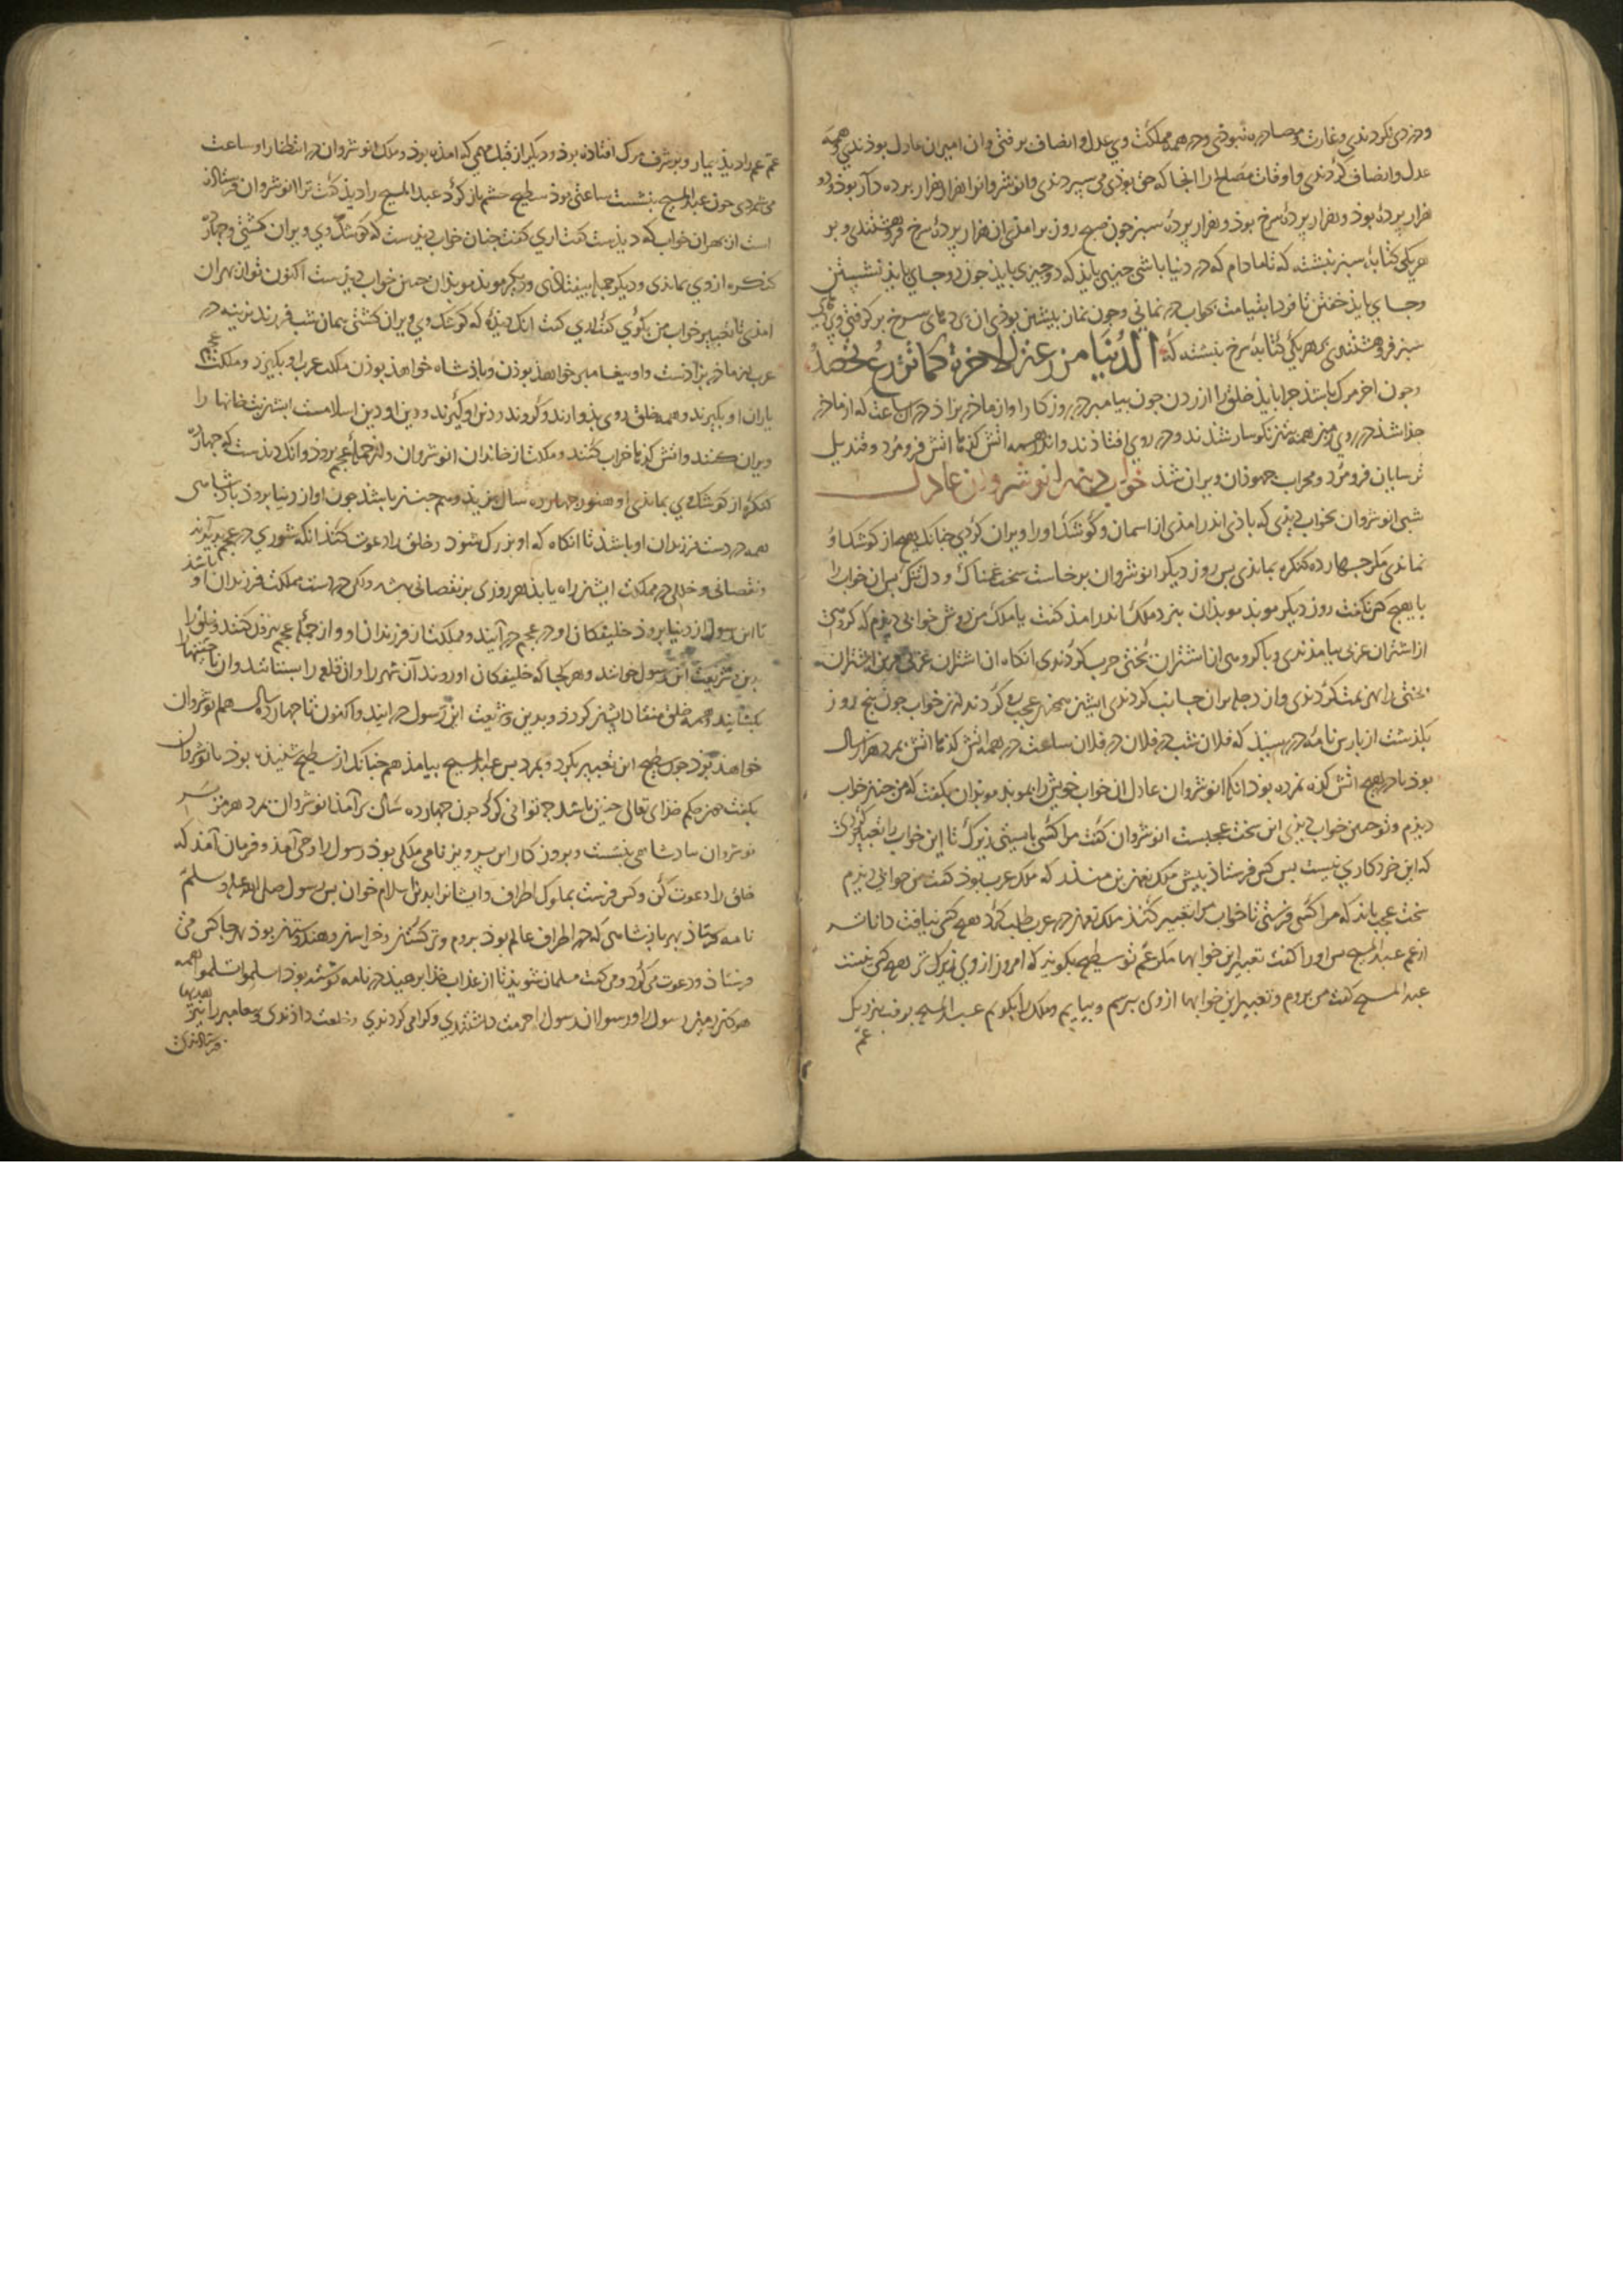 ودزدی نکردندی وغارت ومصادره نبوذی ودر همه مملکت وی عدل وانصاف برفتی وان امیران عادل بوذندی وهمه
عدل وانصاف کردندی واوقات مصالح را انجا که حق بوذی می سپردندی وانوشروانرا هزار هزار پرده دار بوذ ودو
هزار پرده بوذ وهزار پرده سرخ بوذ وهزار پرده سبز جون صبح روز برامذی ان هزار پرده سرخ فروهشتندی وبر
هر یکی کتابه سبز نبشته که تا مادام که در دنیا باشی جیزی بایذ که دو جیزی بایذ جون دو جای بایذ نشستن
وجای بایذ خفتن تا فردا بقیامت بخواب در نمانی وجون نماز پیشین بوذی ان پردهای سرخ بر کرفتی وپردهای
سبز فروهشتندی بر هر یکی کتابه سرخ نبشته که الدنیا مزرعة الاخرة کما تزرع تحصد
وجون اخر مرک باشذ جرا بایذ خلق را ازردن جون بیامبر در روزکار او از ماذر بزاذ در ان ساعت که از ماذر
جذا شذ در روی زمین همه بتان نکوسار شذند ودر روی افتاذند واندر همه اتش کذها اتش فرو مرد وقندیل
ترسایان فرو مرد ومحراب جهوذان ویران شذ خواب دیذن انوشروان عادل
شبی انوشروان بخواب دیذی که باذی اندر امذی از اسمان وکوشک او را ویران کردی جنانک هیچ از کوشک او
نماندی مکر جهارده کنکره بماندی بس روز دیکر انوشروان برخاست سخت غمناک ودل تنک بس ان خواب را
با هیچ کس نکفت روز دیکر موبذ موبذان بنزد ملک اندر امذ کفت یا ملک من دوش خوابی دیذم که کروهی
از اشتران عربی بیامذندی وبا کروهی از اشتران بختی حرب کردندی انکاه ان اشتران عربی مرین اشتران
بختی را هزیمت کردندی واز دجله بران جانب کردندی ایشان همه عجب کردند ازین خواب جون بنج روز
بکذشت از بارس نامه در رسیذ که فلان شب در فلان ساعت در همه اتش کذها اتش بمرد هزار سال
بوذ تا در هیچ اتش کذه نمرده بوذ انکه انوشروان عادل ان خواب خویش را بموبذ موبذان بکفت که من جنین خواب
دیذم وتو جنین خواب دیذی این سخت عجبست انوشروان کفت مرا کسی بایستی زیرک تا این خواب را تعبیر کردی
که این خرد کاری نیست بس کس فرستاذ بیش ملک نعمان بن منذر که ملک عرب بوذ کفت من خوابی دیذم
سخت عجب باید که مرا کسی فرستی تا خواب مرا تعبیر کنذ ملک نعمان در عرب طلب کرد هیچ کس نیافت داناتر
از عم عبد المسیح بس او را کفت تعبیر این خوابها مکر عم تو سطیح بکویذ که امروز از وی زیرک تر هیچ کس نیست
عبد المسیح کفت من بروم وتعبیر این خوابها از وی ببرسم وبیایم وملک را بکویم عبد المسیح برفت بنزدیک
عم
عم عم را دیذ بیمار وبر شرف مرک افتاذه بوذ ودیکر از قبل مهمی که امذه بوذ وملک انوشروان در انتظار او ساعت
می شمردی جون عبد المسیح بنشست ساعتی بوذ سطیح جشم باز کرد عبد المسیح را دیذ کفت ترا انوشروان فرستاذه
است از بهر ان خواب که دیذست کفت اری کفت جنان خواب دیذست که کوشک وی ویران کشتی وجهارده
کنکره از وی بماندی ودیکر جمله بیفتاذی ودیکر موبذ موبذان جنین خواب دیذست اکنون تو از بهر ان
امذی تا تعبیر خواب من بکوی کفت اری کفت انک دیذه که کوشک وی ویران کشتی همان شب فرزند نرینه در
عرب از ماذر بزاذست واو بیغامبر خواهذ بوذن وباذشاه خواهذ بوذن مملکت عرب او بکیرذ ومملکت عجم
یاران او بکیرند وهمه خلق روی بذو ارند وکروند ودین او کیرند ودین او دین اسلامست ایشان بتخانها را
ویران کنند واتش کذها خراب کنند ومملکت از خاندان انوشروان واز جمله عجم بروذ وانک دیذست که جهارده
کنکره از کوشک وی بماندی او هنوز جهارده سال بزیذ وهم جنین باشذ جون او از دنیا بروذ باذشاهی
همه در دست فرزندان او باشذ تا انکاه که او بزرک شوذ وخلق را دعوت کنذ انکه شوری در عجم بدید آید
ونقصانی وخللی در مملکت ایشان راه یابذ هر روزی بر نقصانی بشذ ولکن در دست مملکت فرزندان او باشذ
تا این رسول از دنیا بروذ خلیفتکان او در عجم در آیند ومملکت از فرزندان او واز جمله عجم بیرون کنند وخلق را
بدین وشریعت این رسول خوانند وهر کجا که خلیفتکان او روند آن شهر را وان قلعه را بستانند وان ناحیتها
بکشایند وهمه خلق منقاد ایشان کردذ وبدین وشریعت این رسول در ایند واکنون تا جهارده سال هم انوشروان
خواهذ بوذ جون سطیح این تعبیر بکرد وبمرد بس عبد المسیح بیامذ هم جنانک از سطیح شنیذه بوذ با نوشروان
بکفت همه حکم خذای تعالی جنین باشد جه توانی کرد جون جهارده سال برآمذ انوشروان بمرد هرمز بسر
نوشروان بباذشاهی بنشست وبروزکار این پرویز نامی ملکی بوذ رسول را وحی آمذ وفرمان آمذ که
خلق را دعوت کن وکس فرست بملوک اطراف وایشانرا بدین اسلام خوان بس رسول صلی الله علیه وسلم
نامه فرستاذ بهر باذشاهی که در اطراف عالم بوذ بروم وترکستان وخراسان وهندوستان بوذ بهر جا کس می
فرستاذ ودعوت می کرد ومی کفت مسلمان شویذ تا از عذاب خذا برهیذ در نامه نوشته بوذ اسلموا تسلموا همه
هر کس رسول را ورسولان رسول را حرمت داشتندی وکرامی کردندی وخلعت داذندی وبیغامبر را نیز هدیها
فرستاذندی